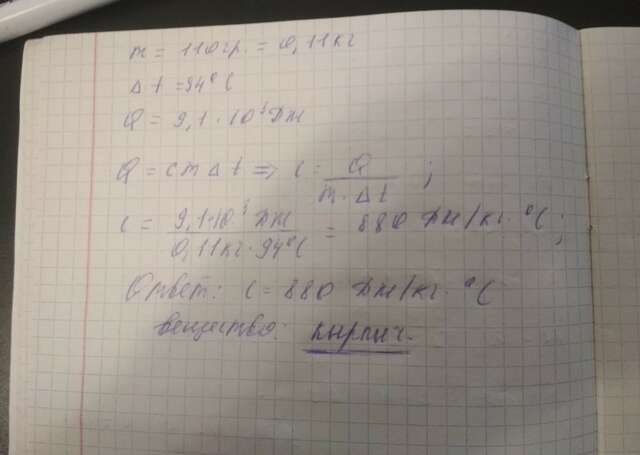 m = 110гр. = 0,11кг
Δt = 94°C
Q = 9,1 · 10³ Дж
Q = cmΔt => c = Q / m · Δt ;
c = 9,1·10³ Дж / 0,11кг · 94°C = 880 Дж/кг · °C ;
Ответ: c = 880 Дж/кг · °C
вещество: кирпич.